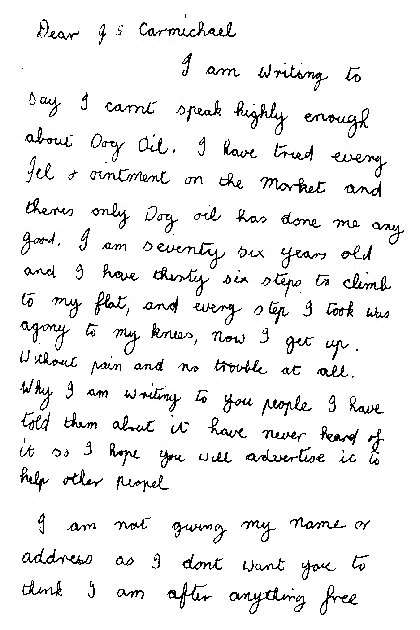 Dear J S Carmichael
I am writing to
say I carnt speak highly enough
about Dog Oil. I have tried every
Jel & ointment on the Market and
theres only Dog oil has done me any
good. I am seventy six years old
and I have thirty six steps to climb
to my flat, and every step I took was
agony to my knees, now I get up.
Without pain and no trouble at all.
Why I am writing to you people I have
told them about it have never heard of
it so I hope you will advertise it to
help other peopel
I am not giving my name or
address as I dont want you to
think I am after anything free